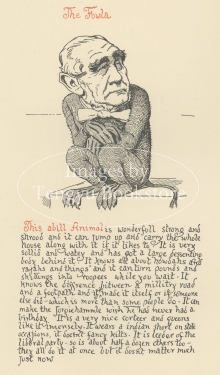 The Fowla
This abill Animal is wonderfull strong and
shrood and it can jump up and carry the whole
house along with it if it likes to. It is very
sollid and watey and has got a large desenting
body behind it. It knows all about howdahs and
rajahs and things and it can turn pounds and
shillings into roopees while you wait. It
knows the difference between a millitry road
and a footpath and made it itself or is someone
else did - which is more than some people do. It can
make the Grouchammle wish he had never had a
birthday. It is a very nice corteer and queens
like it immensely. It wears a indian short on state
occasions, it doesnt fancy kilts. It is leeder of the
libbral party - so is about half a dozen others too -
they all do it at once but it doesnt matter much
just now
Images by